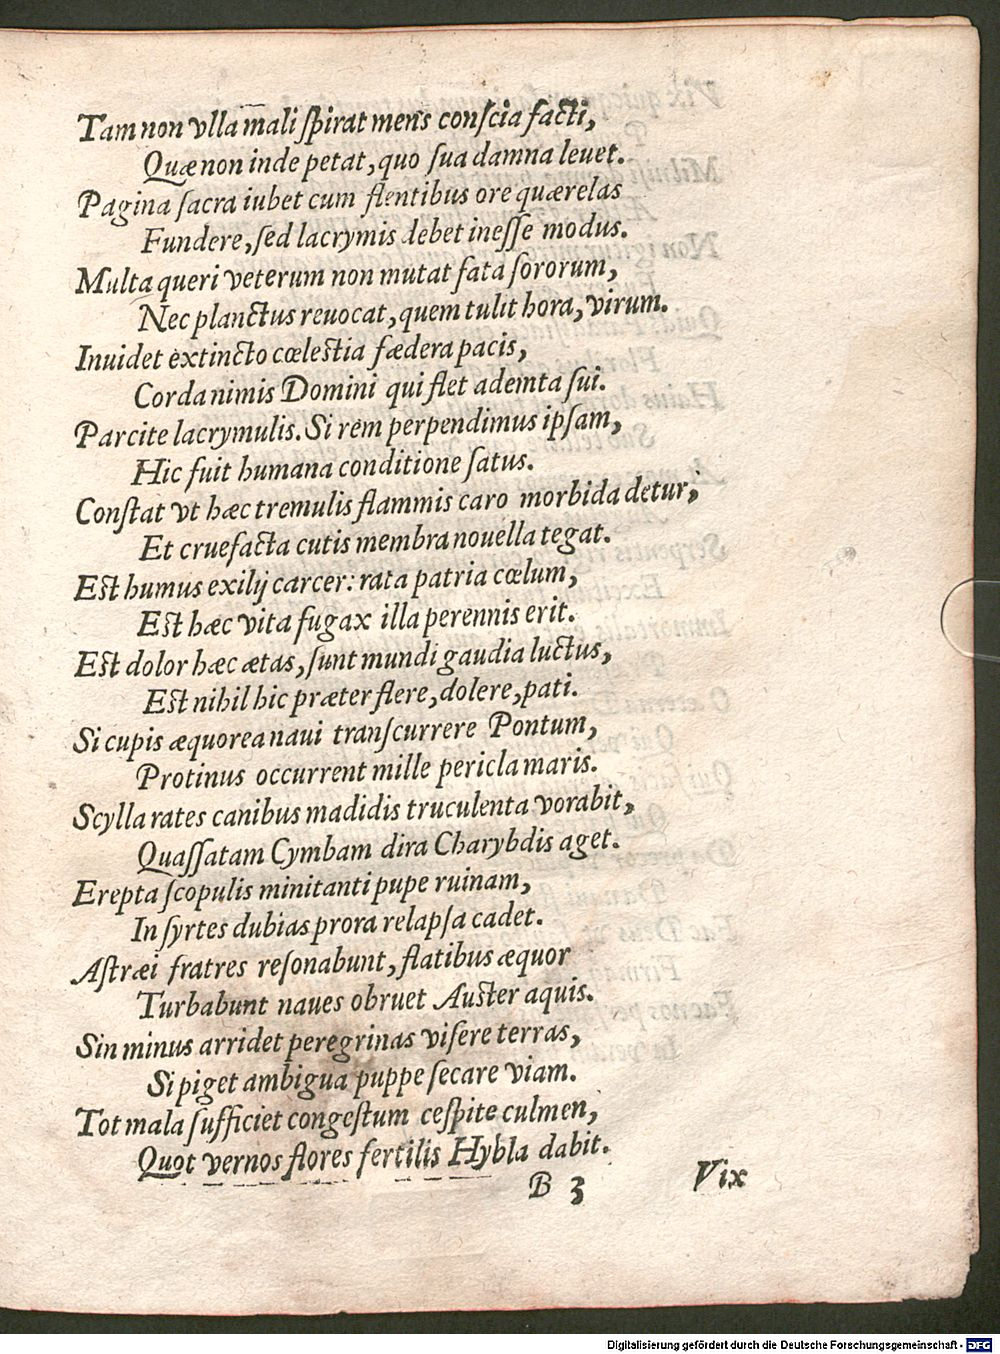 Tam non vlla mali ſpirat mens conſcia facti,
Quæ non inde petat, quo ſua damna leuet.
Pagina ſacra iubet cum flentibus ore quærelas
Fundere, ſed lacrymis debet ineſſe modus.
Multa queri veterum non mutat fata ſororum,
Nec planctus reuocat, quem tulit hora, virum.
Inuidet extincto cœleſtia fœdera pacis,
Corda nimis Domini qui flet ademta ſui.
Parcite lacrymulis. Si rem perpendimus ipſam,
Hic fuit humana conditione ſatus.
Conſtat vt hæc tremulis flammis caro morbida detur,
Et cruefacta cutis membra nouella tegat.
Eſt humus exilij carcer: rata patria cœlum,
Eſt hæc vita fugax illa perennis erit.
Eſt dolor hæc ætas, ſunt mundi gaudia luctus,
Eſt nihil hic præter flere, dolere, pati.
Si cupis æquorea naui tranſcurrere Pontum,
Protinus occurrent mille pericla maris.
Scylla rates canibus madidis truculenta vorabit,
Quaſſatam Cymbam dira Charybdis aget.
Erepta ſcopulis minitanti pupe ruinam,
In ſyrtes dubias prora relapſa cadet.
Aſtræi fratres reſonabunt, flatibus æquor
Turbabunt naues obruet Auſter aquis.
Sin minus arridet peregrinas viſere terras,
Si piget ambigua puppe ſecare viam.
Tot mala ſufficiet congeſtum ceſpite culmen,
Quot vernos flores fertilis Hybla dabit.
B 3 Vix
Digitalisierung gefördert durch die Deutsche Forschungsgemeinschaft - DFG